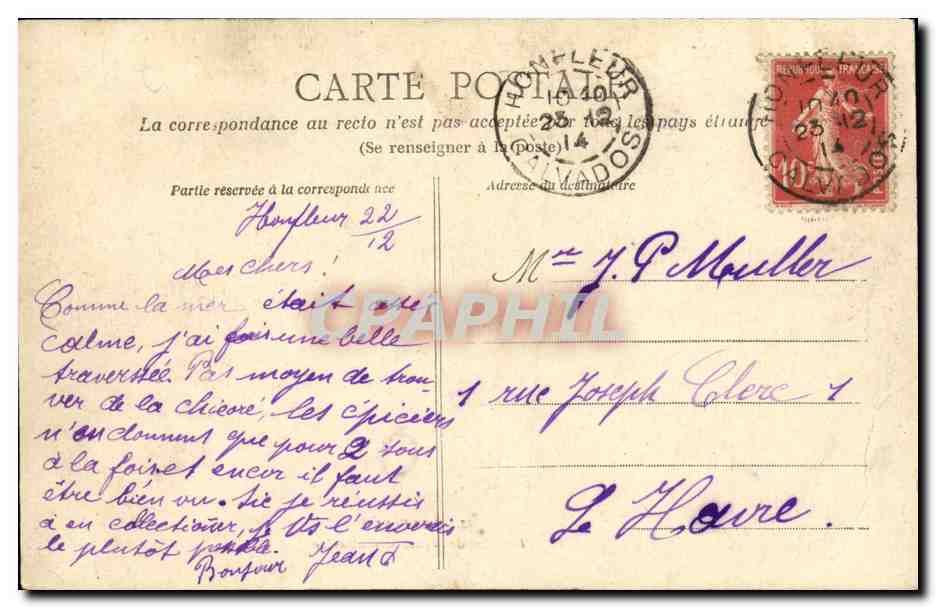 CARTE POSTALE
La correspondance au recto n'est pas acceptée par tous les pays étrangers
(Se renseigner à la poste)
Partie réservée à la correspondance
Adresse du destinataire
HONFLEUR
10 40
23 12
14
CALVADOS
REPUBLIQUE FRANÇAISE
10
HONFLEUR
10 40
23 12
14
CALVADOS
Honfleur 22/12
Mes chers!
Comme la mer était assez
calme, j'ai fais une belle
traversée. Pas moyen de trou-
ver de la chicoré, les épiciers
n'en donnent que pour 2 sous
à la fois et encor il faut
être bien vu. Sie je réussis
à en collectioner, je vs l'enverrais
le plutôt possible.
Bonjour Jean
Mr J. P. Muller
1 rue Joseph Clerc 1
Le Havre.
CPAPHIL